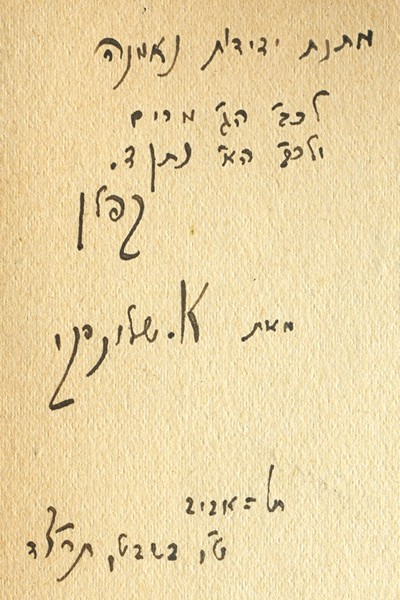 מתנת ידידות נאמנה
לכב׳ הג׳ מרים
ולכב׳ הא׳ נתן ד.
קפלן
מאת א. שלונסקי
תל-אביב
ט"ו בשבט,